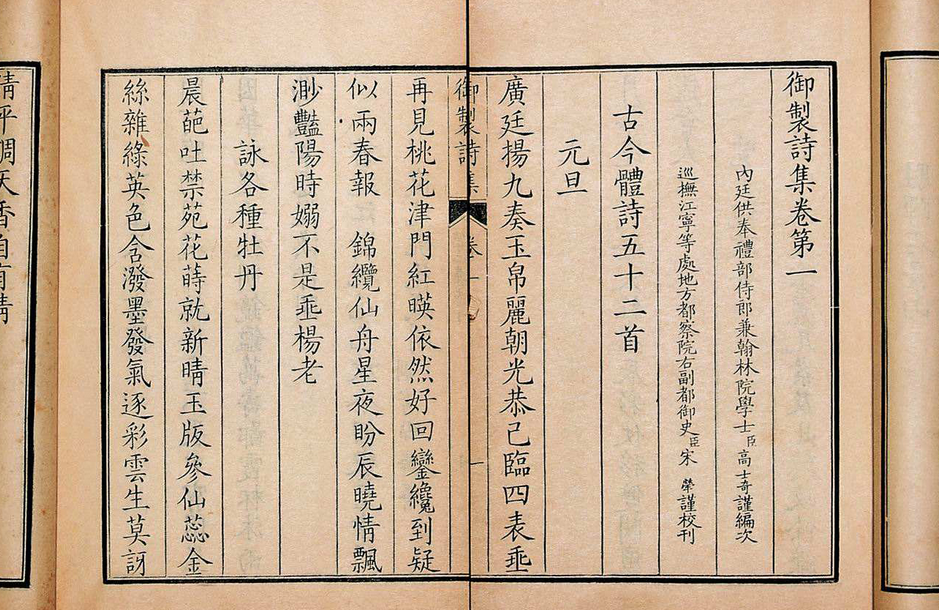 御製詩集卷第一
內廷供奉禮部侍郎兼翰林院學士臣高士奇謹編次
巡撫江寧等處地方都察院右副都御史臣宋犖謹校刊
古今體詩五十二首
元旦
廣廷揚九奏玉帛麗朝光恭己臨四表垂
御製詩集 卷一 一
再見桃花津門紅暎依然好回鑾纔到疑
似兩春報 錦纜仙舟星夜盼辰曉情飄
渺豔陽時嫋不是垂楊老
詠各種牡丹
晨葩吐禁苑花蒔就新晴玉版參仙蕊金
絲雜綠英色含潑墨發氣逐彩雲生莫訝
清平調天香自有情